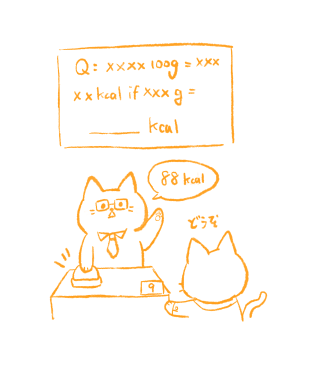 Q: xxxx 100g = xxx
xx kcal if xxx g =
____ kcal
88 kcal
どうぞ
9